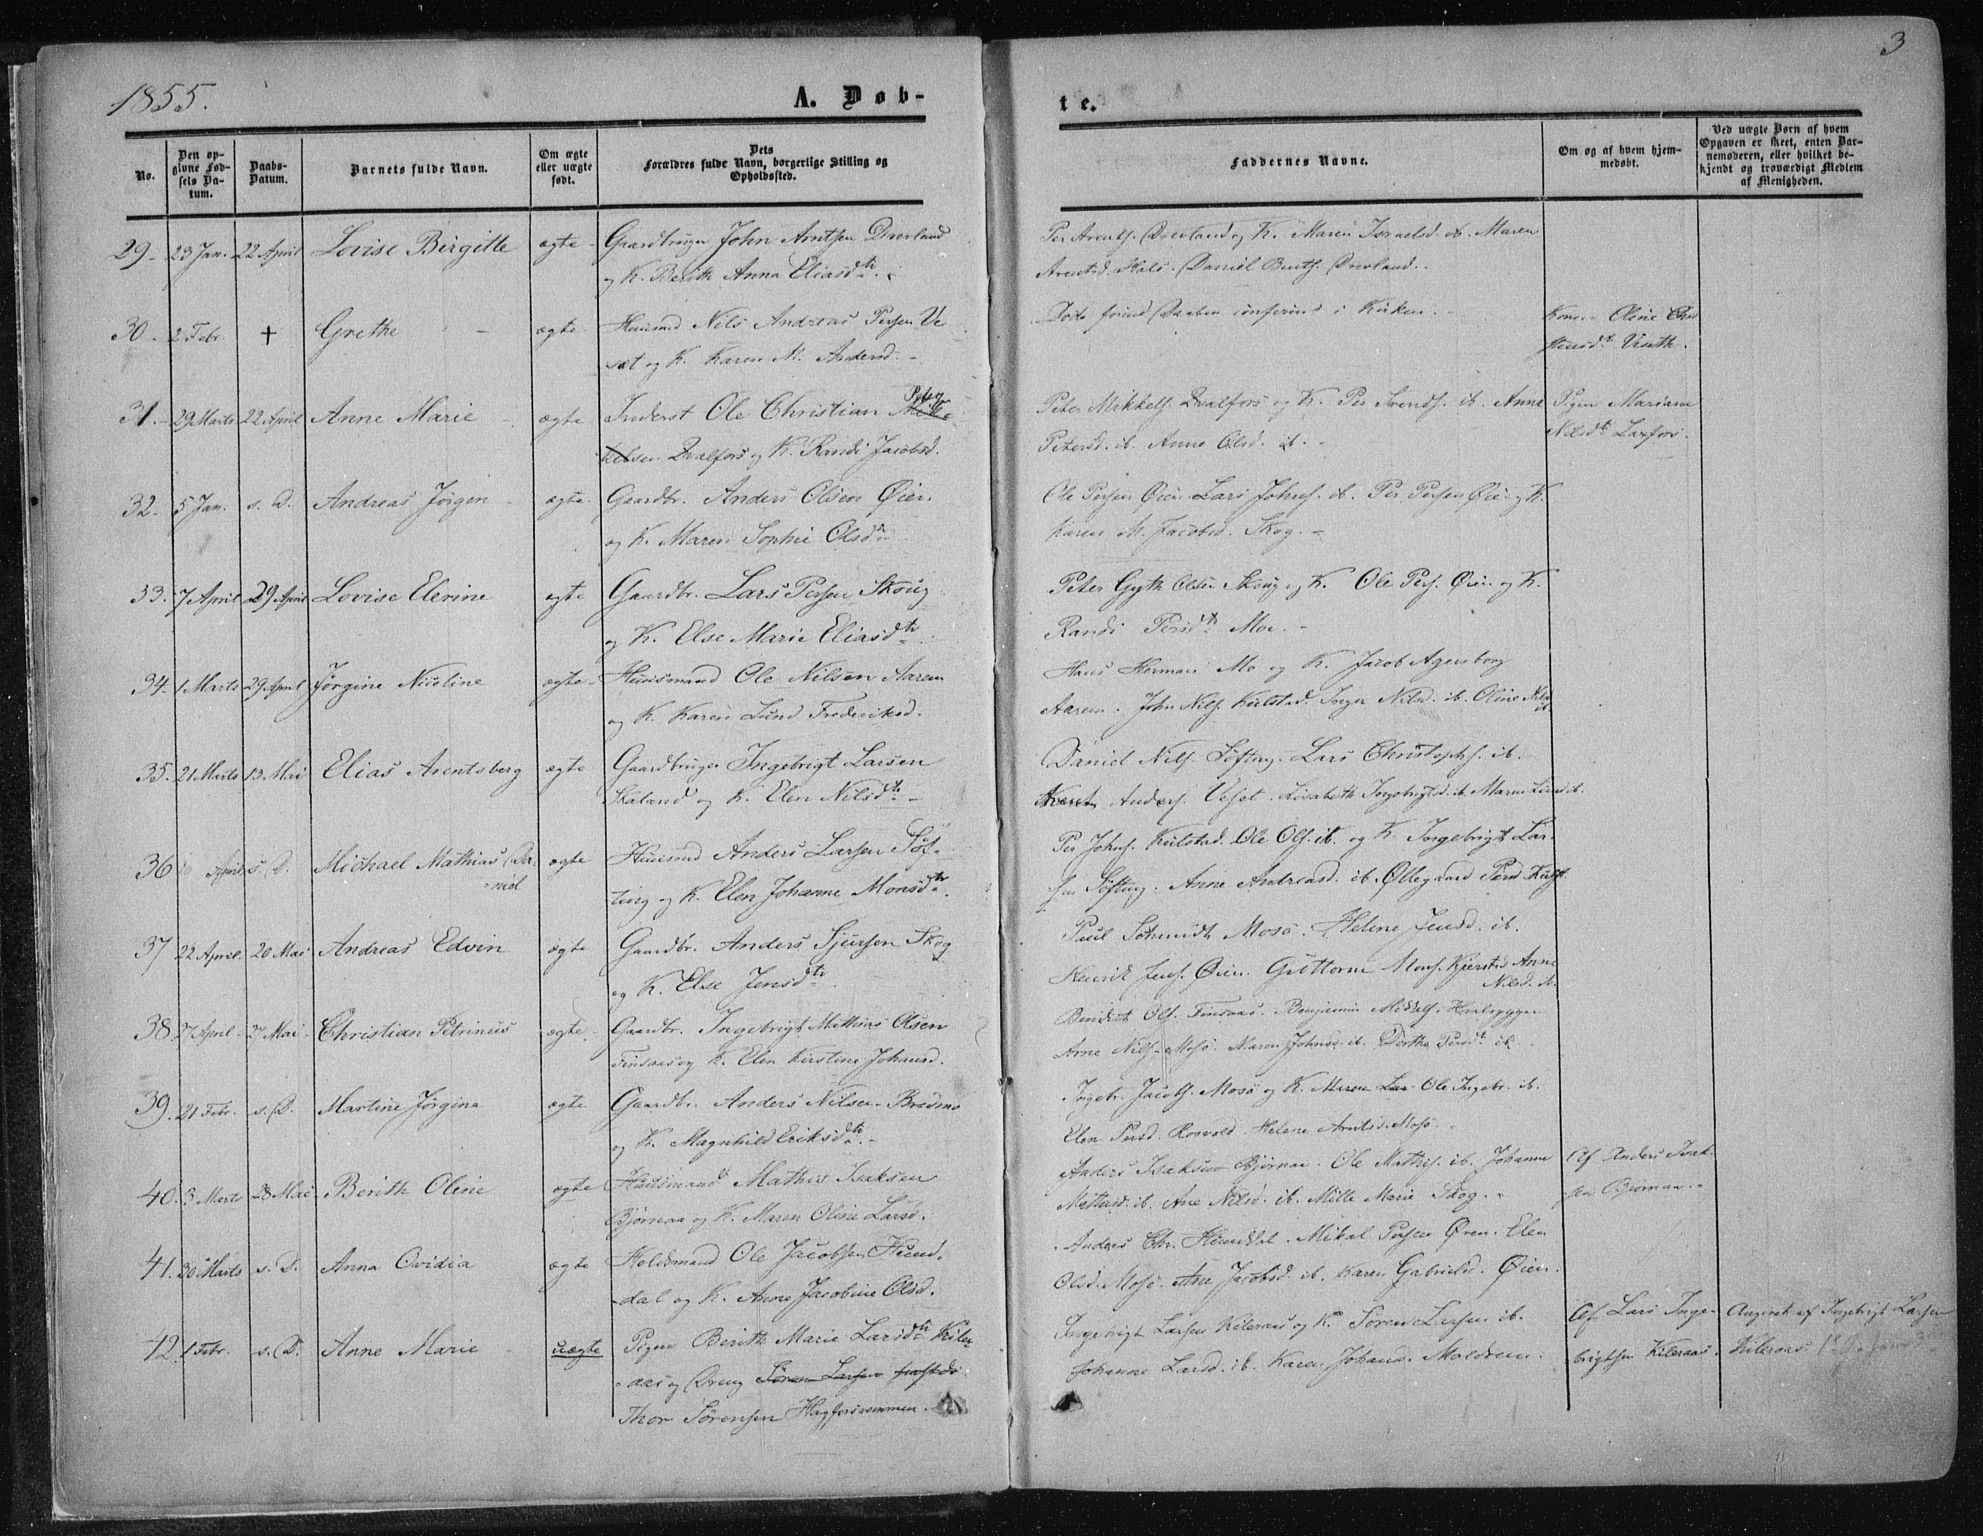 3
1855.
A. Døb-
te.
No.
Den op-
givne Fød-
sels Da-
tum.
Daabs-
Datum.
Barnets fulde Navn.
Om ægte
eller uægte
født.
Dets
Forældres fulde Navn, borgerlige Stilling og
Opholdssted.
Faddernes Navne.
Om og af hvem hjem-
medøbt.
Ved uægte Børn af hvem
Opgaven er skeet, enten Bar-
nemoderen, eller hvilket be-
kjendt og troværdigt Medlem
af Menigheden.
29- 23 Jan. 22 April Lovise Birgitte ægte Gaardbruger John Arntsen Drevland
og K. Berith Anna Eliasdtr.
Maren Israelsd. ib. Maren
Arentsd. Hals. Daniel Drevland.
30- 2 Febr. + Grethe ægte Huusmd Nils Andreas Persen Ve
sæt og K. Karen M. Andersd.
Døde Daaben i Kirken.
Kone Oline
31.- 29 Marts 22 April Anne Marie ægte Inderst Ole Christian
Dvalfors og K. Randi Jacobsd.
Peter Mikkels. Dvalfors og K. Per Svends. ib. Anne
Petersd. ib. Anne Olsd. ib.
Pigen Mariana
Nilsdtr Laxfors.
32- 5 Jan. s. D. Andreas Jørgen ægte Gaardbr. Anders Olsen Øien
og K. Maren Sophie Olsdtr
Ole Persen Øien Lars Johns. ib. Per Persen Øien og K.
Karen M. Jacobsd. Skog.
33. 7 April 29 April Lovise Elerine ægte Gaardbr. Lars Persen Skoug
og K. Else Marie Eliasdtr
Peter Gyth Olsen Skoug og K. Ole Pers. Øien og K.
Randi Persdtr Moe.
34- 1 Marts 29 April Jørgine Nicoline ægte Huusmand Ole Nilsen Aarem
og K. Karen Lund Frederiksd.
Hans Herman Mo og K. Jacob Agersborg
Aarem. John Nils. Kulstad. Inger Nilsd. ib. Oline Nilsd
ib.
35. 21 Marts 13 Mai Elias Arentsberg ægte Gaardbruger Ingebrigt Larsen
Skaland og K. Elen Nilsdtr
Daniel Nils. Søfting. Lars Christophs. ib.
Anders. Veset. Lisabeth Ingebrigtsd. ib. Maren
36 April s. D. Michael Mathias Da-
niel ægte Huusmd Anders Larsen Søf-
ting og K. Elen Johanne Monsdtr.
Per Johns. Kulstad. Ole Ols. ib. og K. Ingebrigt Lar-
sen Søfting. Anne Andreasd. ib. Øllegaard
37 22 April 20 Mai Andreas Edvin ægte Gaardbr. Anders Sjursen Skog
og K. Else Jensdtr.
Paul Schmidt Mosø. Helene Jensd. ib.
Henrik Jens. Øien. Guttorm Mons. Kjerstad Anne
Nilsd. ib.
38 27 April 27 Mai Christian Petrinus ægte Gaardbr. Ingebrigt Mathias Olsen
Finsaas og K. Elen Kirstine Johansd.
Bendict Ols. Finsaas. Benjamin
Arne Nils. Mosø. Maren Johnsd. ib. Dorthe Persdtr ib.
39. 21 Febr. s. D. Martine Jørgine ægte Gaardbr. Anders Nilsen Bredmo
og K. Magnhild Eriksdtr.
Ingebr. Jacobs. Mosø og K. Maren Ole Ingebr. ib.
Elen Persd. Rosvold. Helene Arntsd. Mosø.
40. 3 Marts 28 Mai Berith Oline ægte Huusmand Mathis Isaksen
Bjørnaa og K. Maren Oline Larsd.
Anders Isaksen Bjørnaa. Ole Mathis. ib. Johanna
Mathisd. ib. Ane Nilsd. ib. Mille Marie Skog.
Af Anders Isak-
sen Bjørnaa.
41. 30 Marts s. D. Anna Ovidia ægte Holdsmand Ole Jacobsen Hund-
dal og K. Anne Jacobine Olsd.
Anders Chr. Hunddal. Mikal Persen Øien. Elen
Olsd. Mosø. Ane Jacobsd. ib. Karen Gabrielsd. Øien.
42. 1 Febr. s. D. Anne Marie uægte Pigen Berith Marie Larsdtr Kiler-
aas og Dreng Søren Larsen
Thor Sørensen Hagforsremmen.
Ingebrigt Larsen Kileraas og K. Søren Larsen ib.
Johanne Larsd. ib. Karen Johansd.
Af Lars Inge-
brigtsen Kileraas.
Angivet af Ingebrigt Larsen
Kileraas